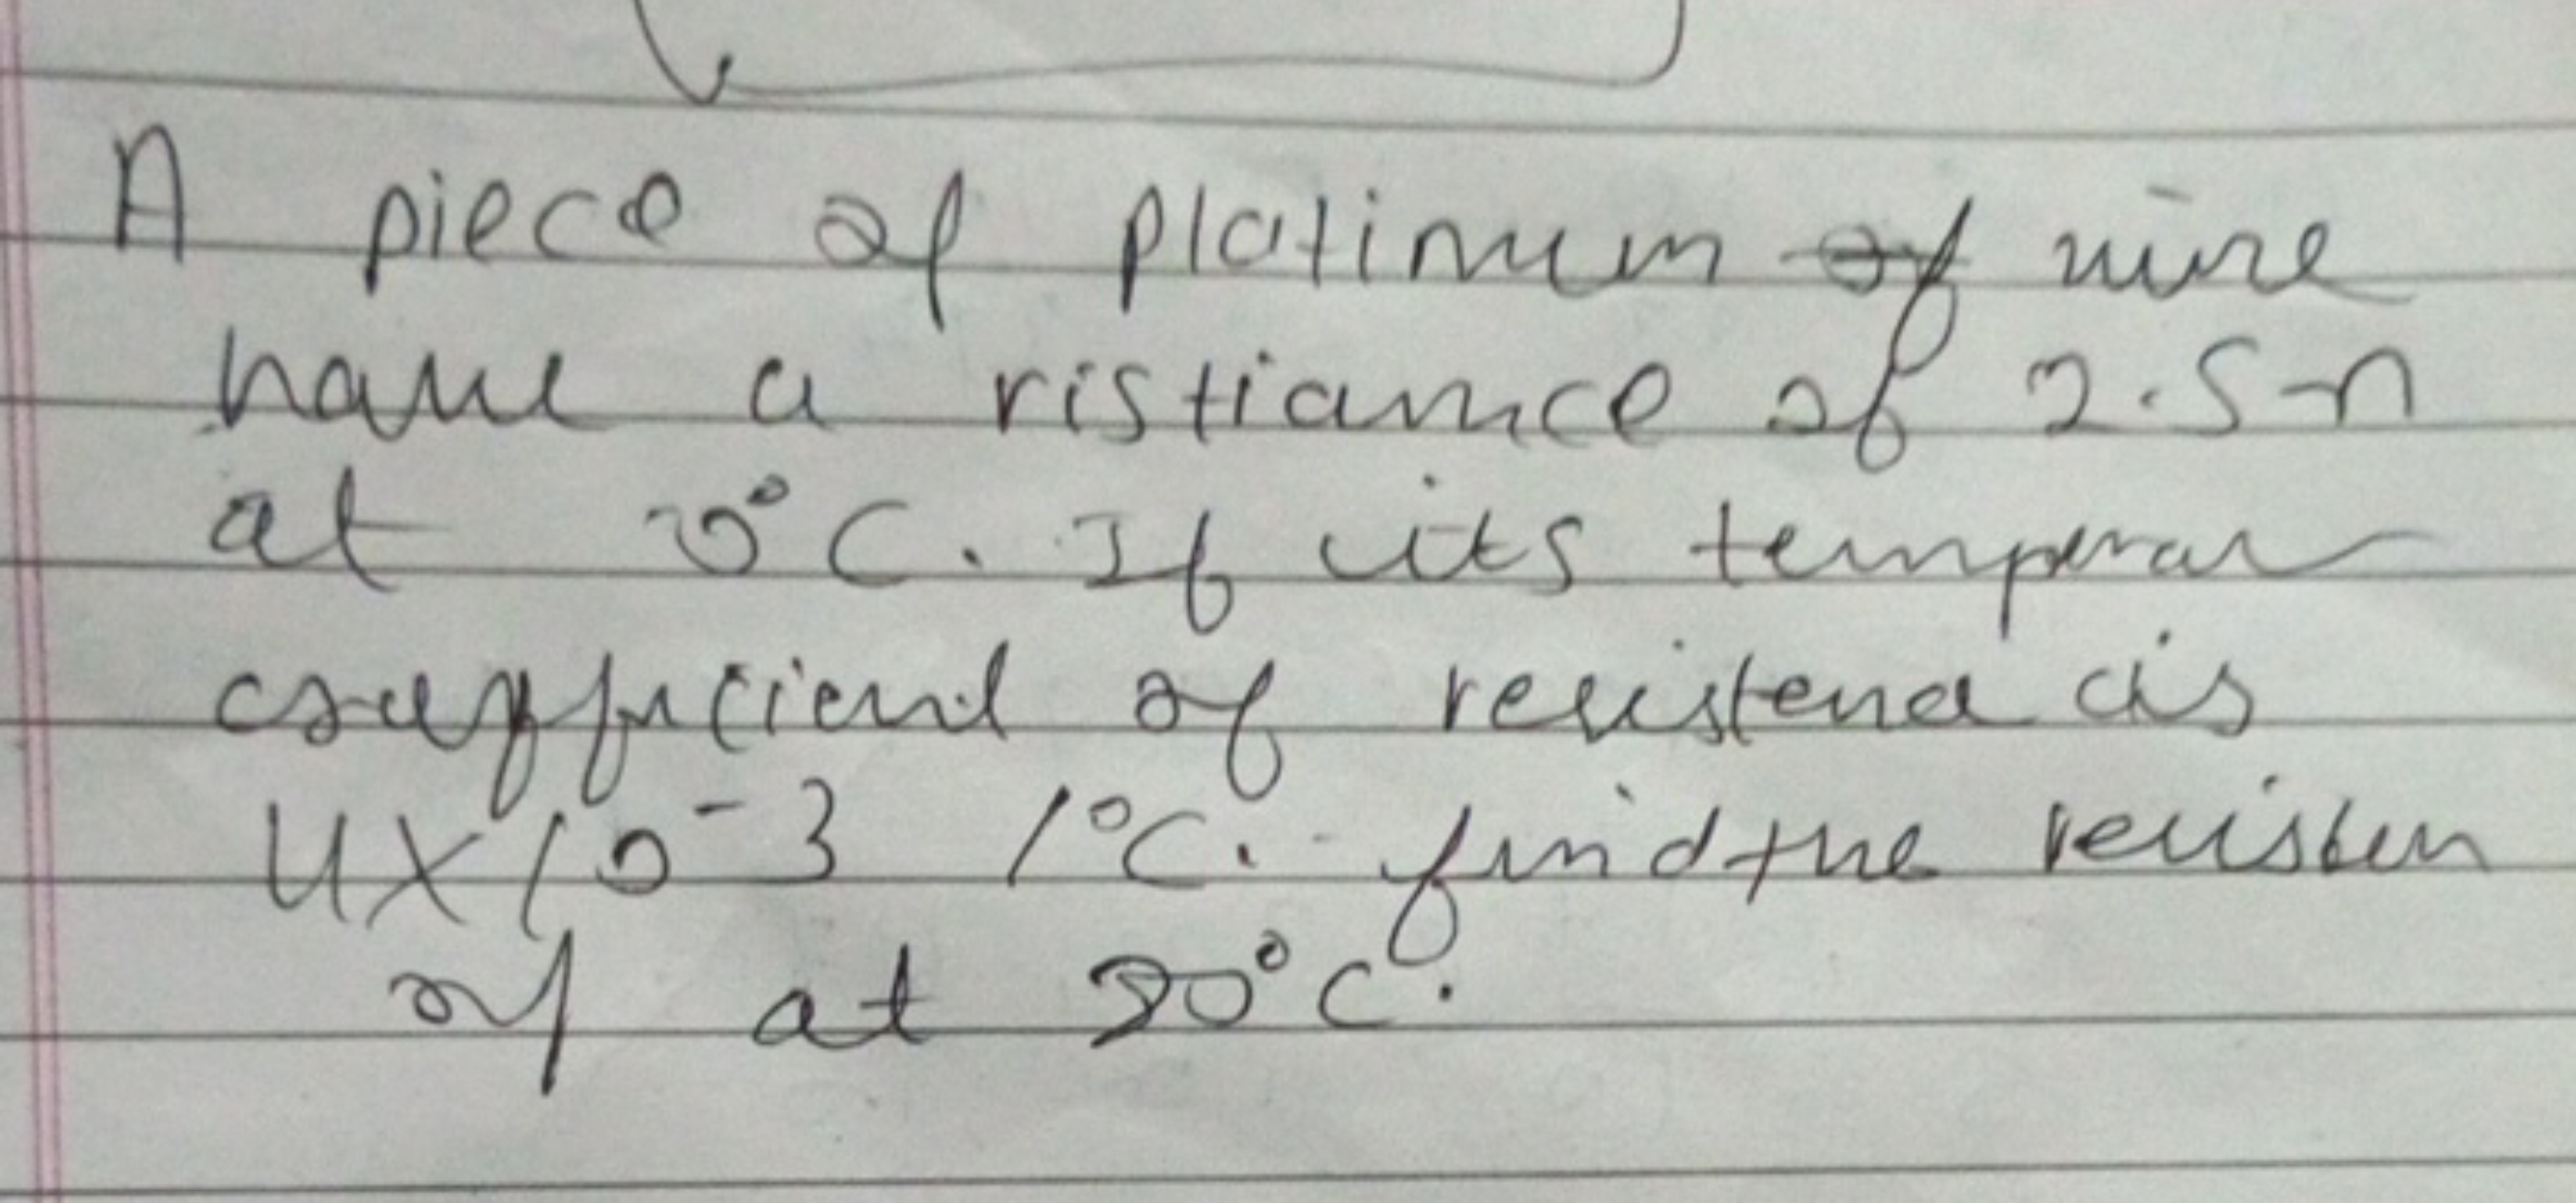 A piece of platinum of wire
have a ristiance of 2.5Ω
at 0°C. If its temperar
coefficient of resistend is
4X10⁻³ /°C. find the resisten
of at 80°C.